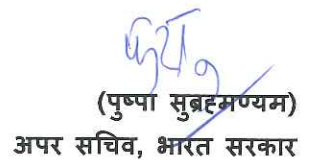 (पुष्पा सुब्रह्मण्यम)
अपर सचिव, भारत सरकार